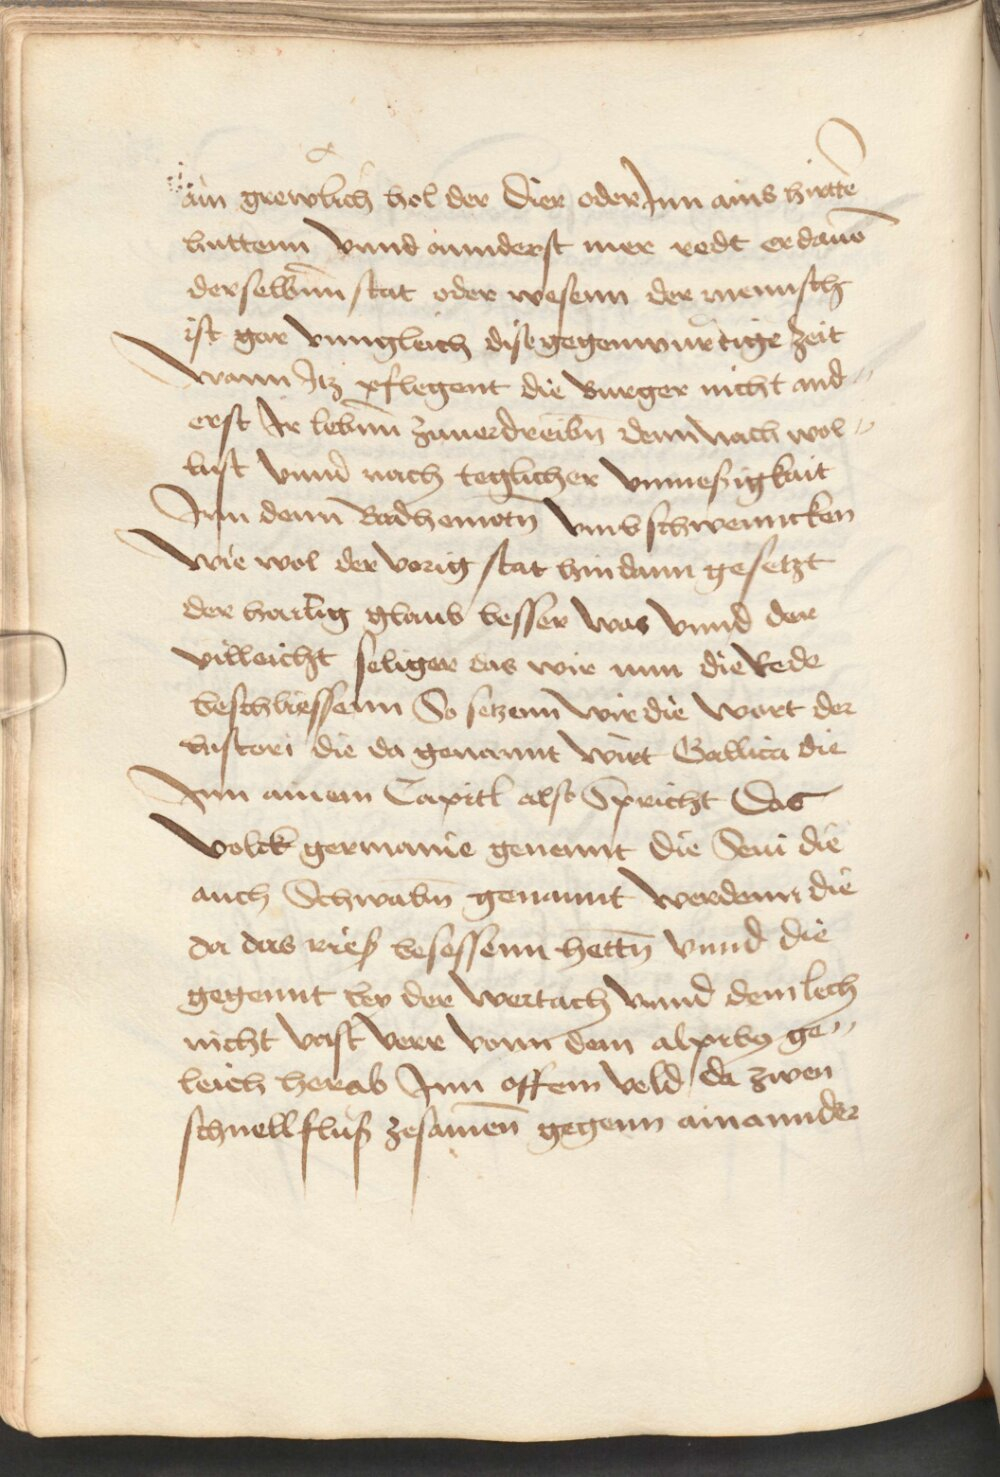 ain grewlich hol der dier oder Jnn ains hirttē
huttenn Vnnd annderst mer redt er dauō
derselbn̄n stat oder wesenn der mennsch
ist gar vnngleich diße gegenwurtige Zeit
Wann Jtz pflegent die Burger nicht and〃
erst Jr lebn̄n Zuuerdreibn̄ denn nach wol〃
lust Vnnd nach teglicher Vnmeßigkait
Jnn denn Badhemotn̄ vmb schwennncken
Wie wol der vorig stat hindann gesetzt
der hailig glaub besser was Vnnd der
villeicht seliger das wir nun die Rede
beschliessenn So setzenn wir die Wort der
histori die da genannt wirt Gallica die
Jnn ainem Capitl also Spricht Das
Volck germanie genennt die Seui die
auch Schwabn̄ genannt werdenn die
da das rieß besessenn hettn̄ Vnnd die
gegennt bey der Wertach Vnnd dem lech
nicht Vast Verr vonn dem alpirby ge〃
leich herab Jnn offem Veld da zwen
schnell fluß zesamen̄ gegenn ainannder